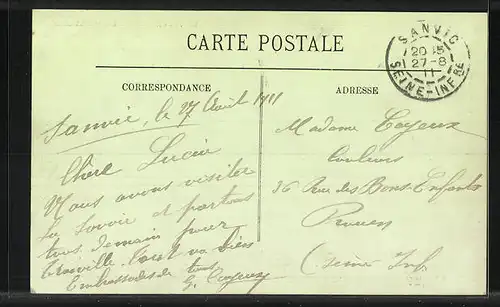 CARTE POSTALE
CORRESPONDANCE
ADRESSE
SANVIC
20 15
27-8
11
SEINE-INFRE
Sanvic, le 27 Août 1911
Chère Lucie
Nous avons visiter
La Savoie et partons
tous demain pour
Trouville. Tout va bien
Embrassades de tous
G. Cayeux
Madame Cayeux
36 Rue des Bons-Enfants
Rouen
(Seine Inf.